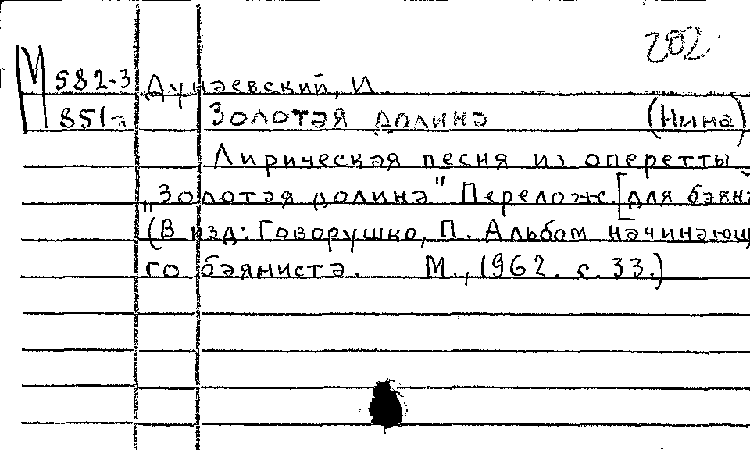 202
М 582-3 Дунаевский, И.
851а Золотая долина (Нина)
Лирическая песня из оперетты
„Золотая долина" Перелож. [для баяна
(В изд: Говорушко, П. Альбом начинающе
го баяниста. М., 1962. с. 33.)